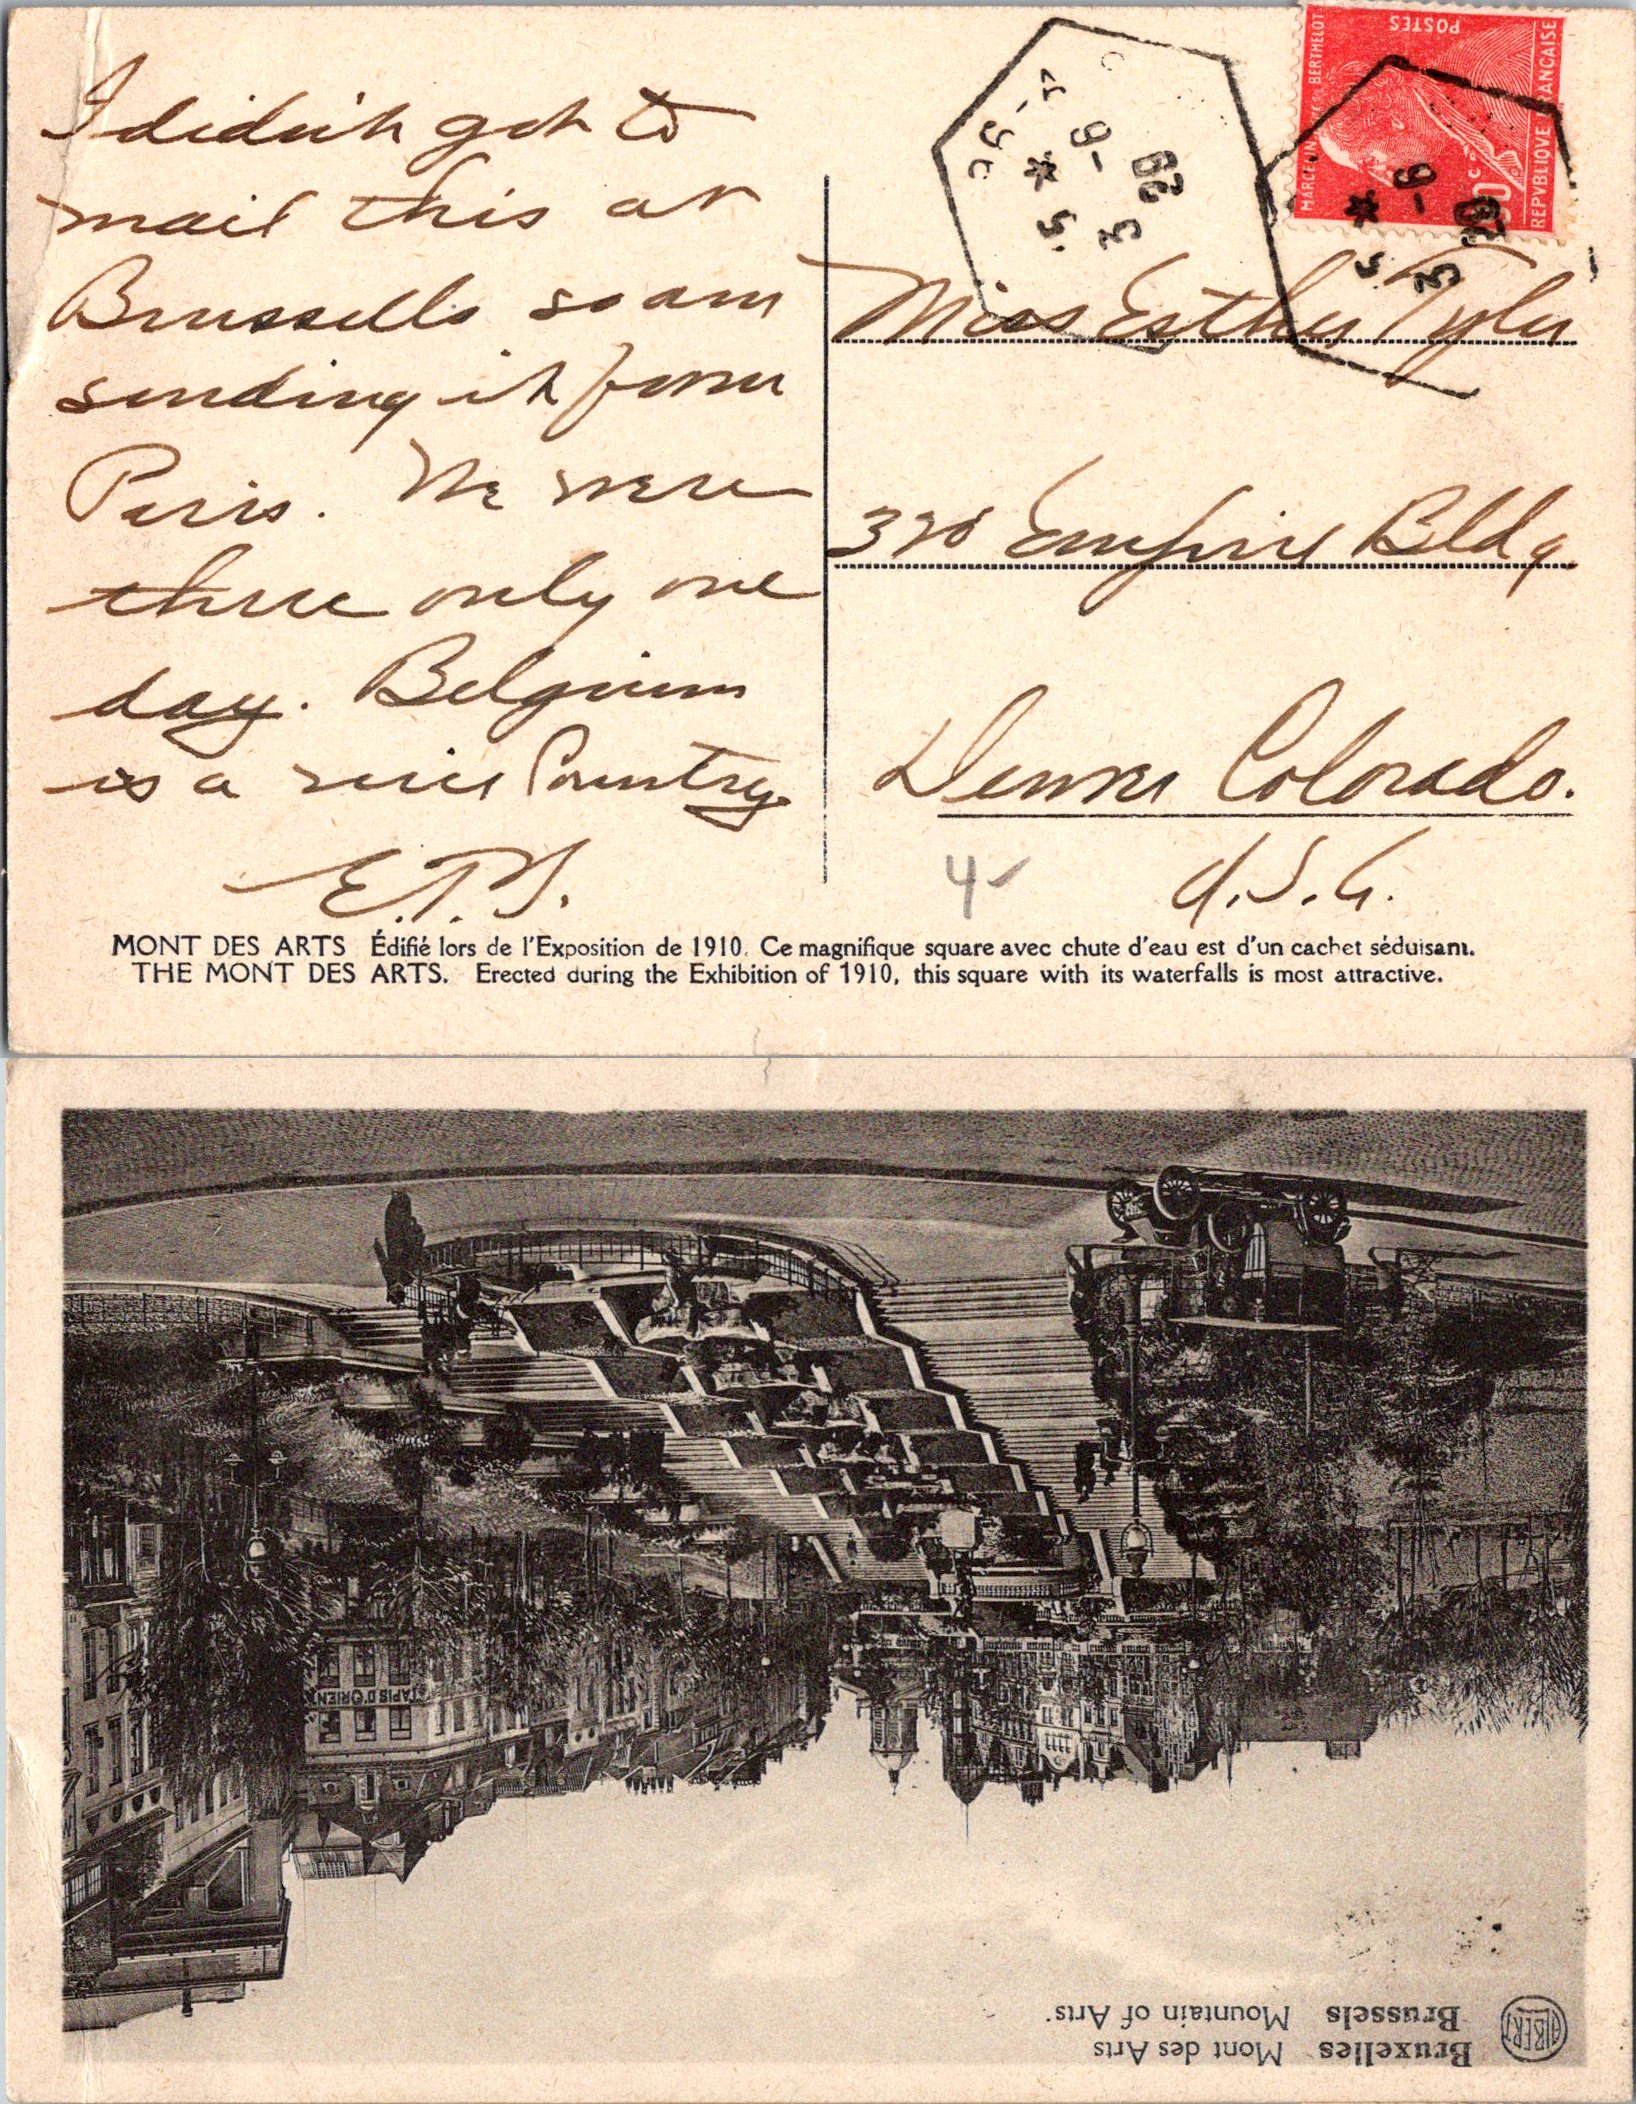 I didn't get to
mail this at
Brussells so am
sending it from
Paris. We were
there only one
day. Belgium
is a nice Country
Miss Esther Tyler
Empire Bldg
Denver Colorado.
U.S.A.
4
POSTES
REPVBLIQVE FRANCAISE
BERTHELOT
6 - 3 29
6 - 3 29
MONT DES ARTS Édifié lors de l'Exposition de 1910. Ce magnifique square avec chute d'eau est d'un cachet séduisant.
THE MONT DES ARTS. Erected during the Exhibition of 1910, this square with its waterfalls is most attractive.
TAPIS D'ORIENT
Bruxelles Mont des Arts
Brussels Mountain of Arts.
ALBERT